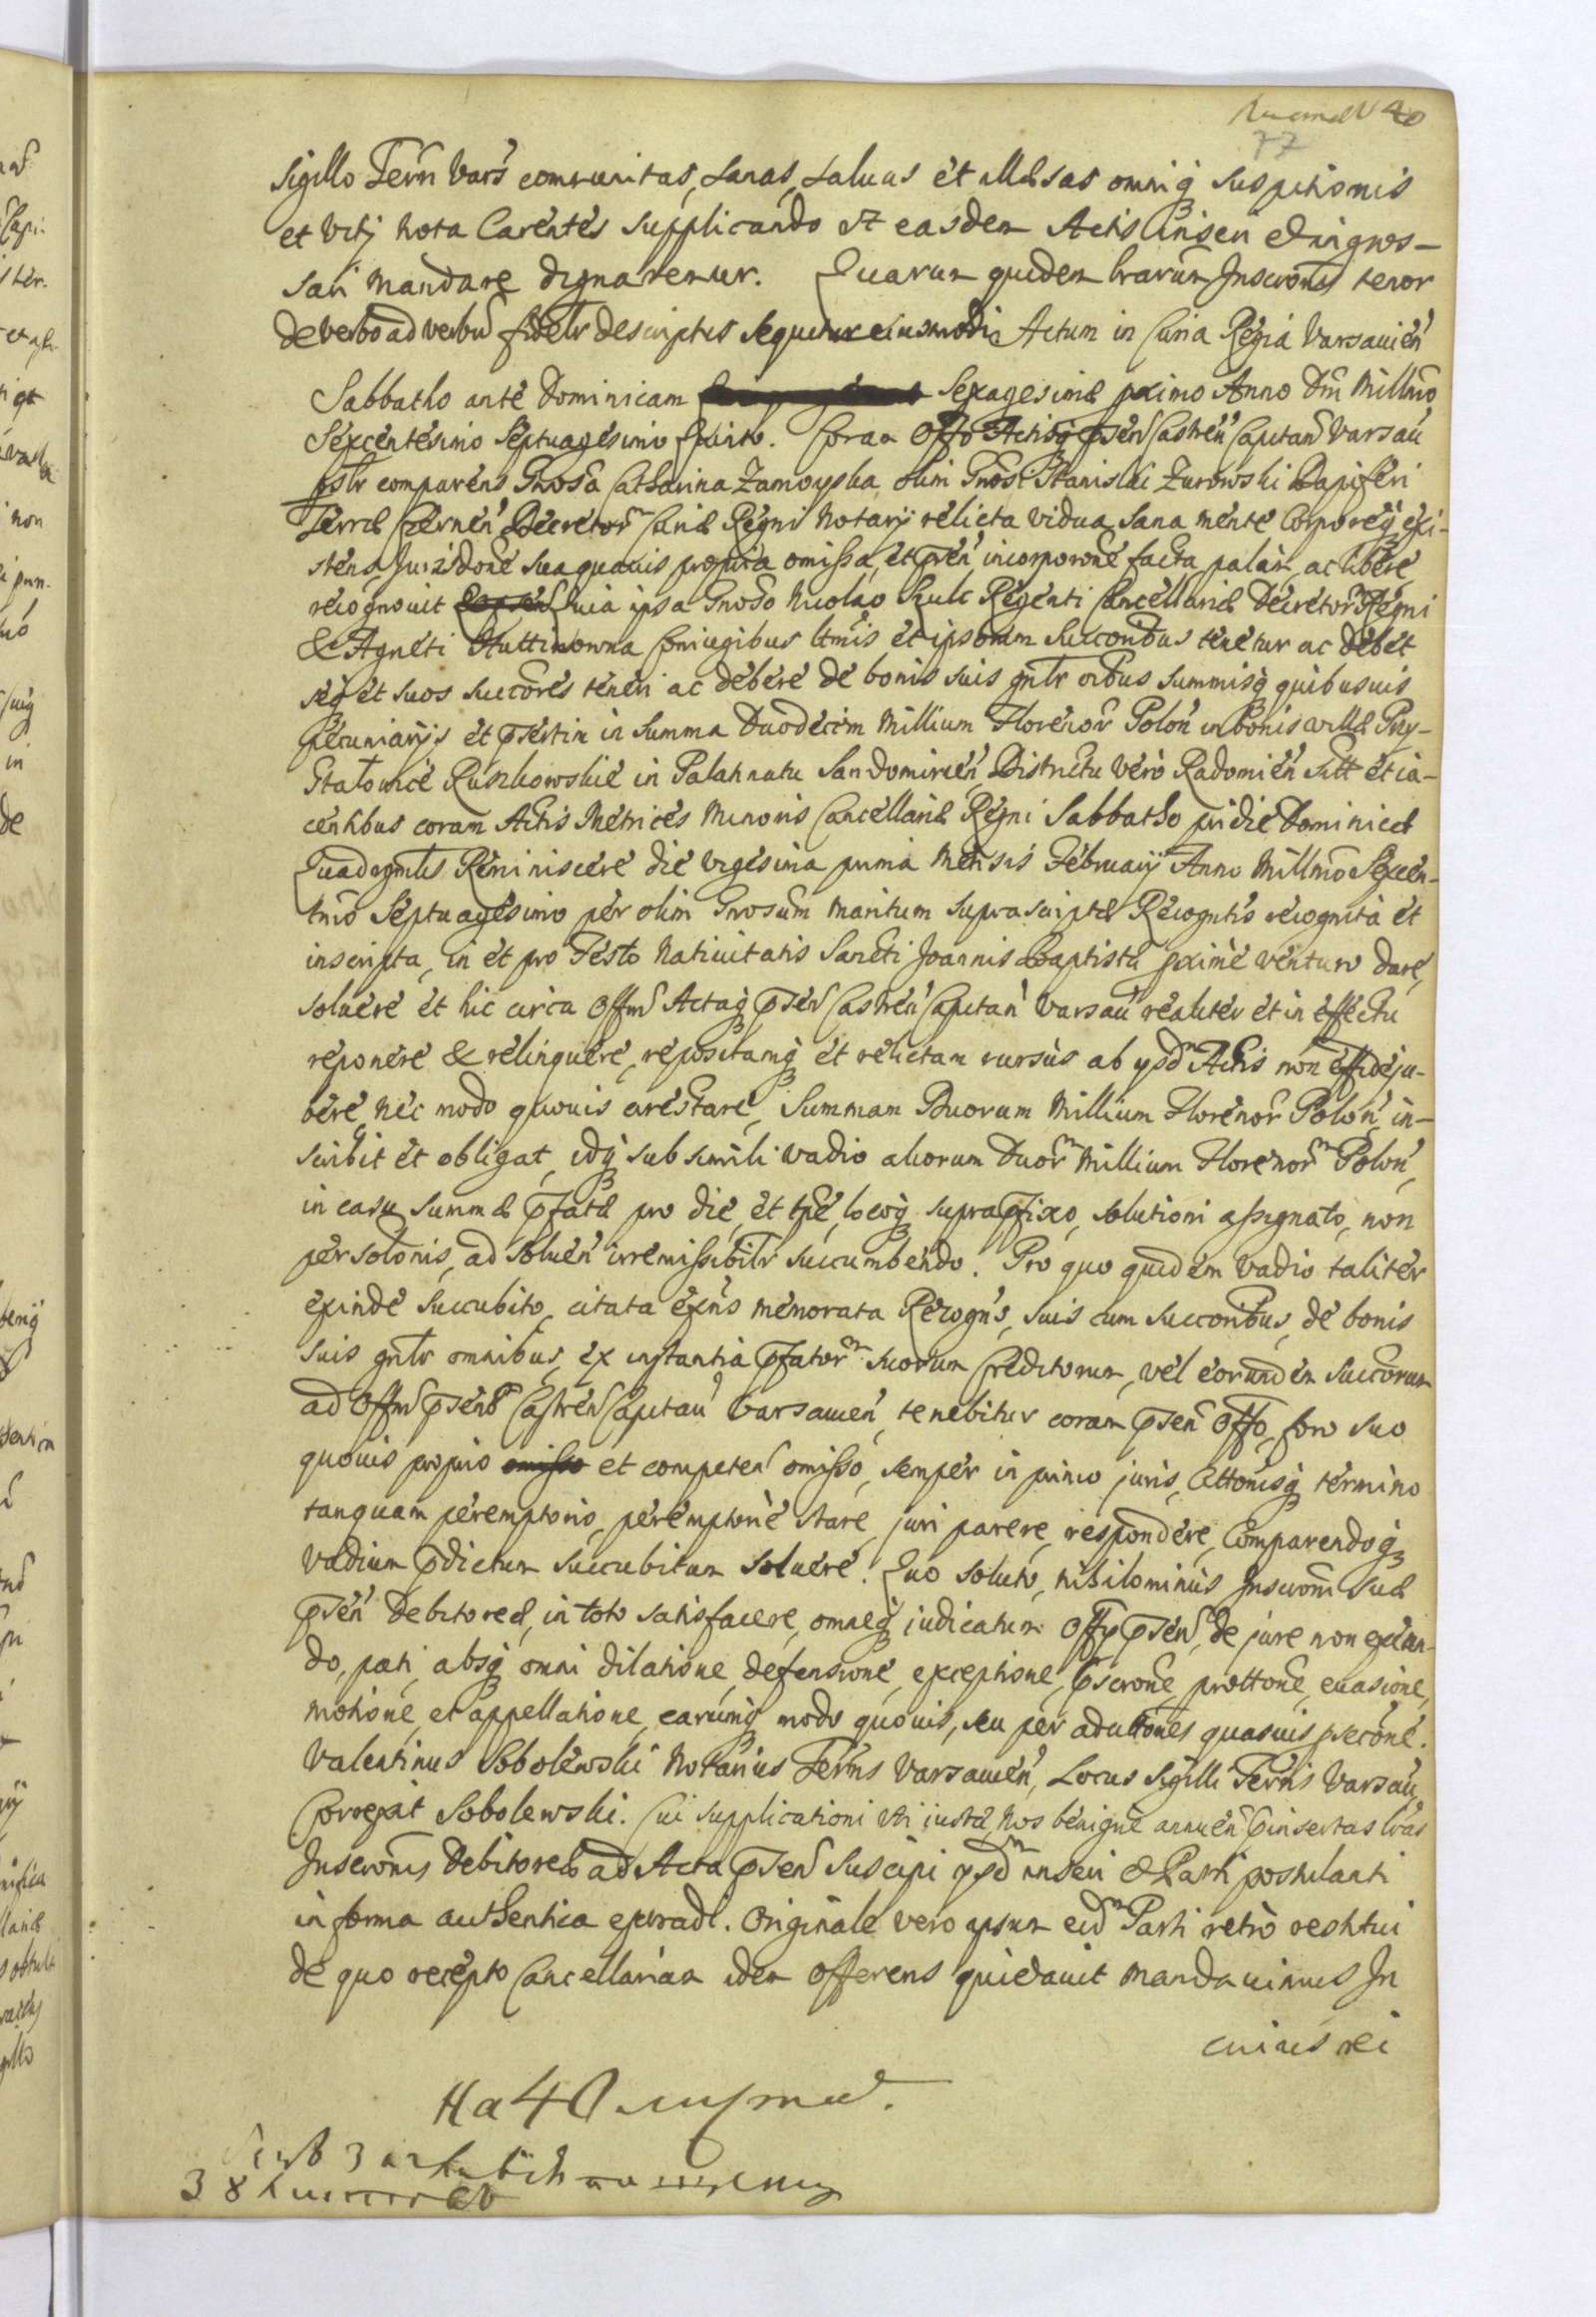 40
77
sigillo Terrń Varś communitas, sanas, saluas et illæsas omniq suspitionis
et vitij nota Carentes supplicando vt easdem Actis Inseri et ingros-
sari mandare dignaremur. Quarum quidem lrarum Inscrōnis tenor
de verbo ad verbū fidelr descriptus sequitur eiusmodi Actum in Curia Regia Varsauień
Sabbatho ante Dominicam Sexagesimæ pximo Anno Dńi Millmo
Sexcentesimo Septuagesimo Quinto. Coram Offo Actisq pseń Castreń Capitań Varsau
psltr comparens Gnosa Catharina Zamoyska olim Gnosi Stanislai Zurowski Dapiferi
Terræ Czerneń Decretorm Curiæ Regni Notarij relicta vidua sana mente Corporeq exi-
stens, Jurisdōne sua quauis propria omissa, et pseń incorporōne facta palam, ac libere,
recognouit Quia ipsa Gnoso Nicolao Szulc Regenti Cancellariæ Decretorm Regni
& Agneti Huttinowna Coniugibus ltmis et ipsorum Succoribus tenetur ac debet
seq et suos succōres teneri ac debere de bonis suis gnlr oibus summisq quibusuis
pecuniarijs et psertim in Summa Duodecim Millium Florenor Poloń in bonis villæ Przy-
stałowice Ruszkowskie in Palatinatu Sandomirień Districtu verò Radomień Sitt et ia-
centibus coram Actis Metrices Minoris Cancellariæ Regni Sabbatho pridie Dominicæ
Quadragmlis Reminiscere die vigesima prima Mensis Februarij Anno Millmo Sexcen-
tmo Septuagesimo per olim Gnosum maritum suprascriptæ Recogntis recognita et
inscripta, in et pro Festo Natiuitatis Sancti Joannis Baptistæ pxime venturo dare,
soluere et hic circa Offm Actaq pseń Castreń Capitań Varsau realiter et in effectu
reponere & relinquere, repositamq et relictam rursus ab ysdm Actis non effideju-
bere, nec modo quouis arestare, Summam Duorum Millium Florenor Poloń, in-
scribit et obligat, idq sub simili vadio aliorum Duorm Millium Florenorm Poloń,
in casu Summæ pfatæ pro die, et tpe, locoq suprapfixo, solutioni assignato, non
persolōnis, ad solueń irremissibilr succumbendo. Pro quo quidem vadio taliter
exinde succubito, citata exns memorata Recogns, suis cum succoribus, de bonis
suis gnlr omnibus, ex instantia pfatorm suorum Creditorum, vel eorundem Succorum
ad Offm pseńs Castreń Capitań Varsauień, tenebitur coram pseń Offo, foro suo
quouis proprio omisso et competeń omisso, semper in primo juris, Attonisq termino
tanquam peremptorio, peremptorie stare, juri parere, respondere, Comparendoq
vadium pdictum succubitum soluere. Quo soluto, nihilominus Inscroni suæ
pseń debitoreæ, in toto satisfacere, omneq judicatum Offy pseń, de jure non exeun-
do, pati, absq omni dilatione, defensione, exceptione, pscrōne, prottone, euasione,
motione, et appellatione, earumq modo quouis, seu per aducitōnes quasuis pseconé.
Valentinus Sobolewski Notarius Terrńs Varsauień, Locus Sigilli Terrńis Varsau,
Correxit Sobolewski. Cui supplicationi vti iustæ, Nos benigne annueń pinsertas lras
Inscronis Debitoreas ad Acta pseń suscipi ysdm inseri & Parti postulanti
in forma authentica extradi. Originale vero ipsum eidm Parti retrò restitui
de quo recepto Cancellariam idem Offerens quietauit mandauimus In
cuius rei
На 40
3
38